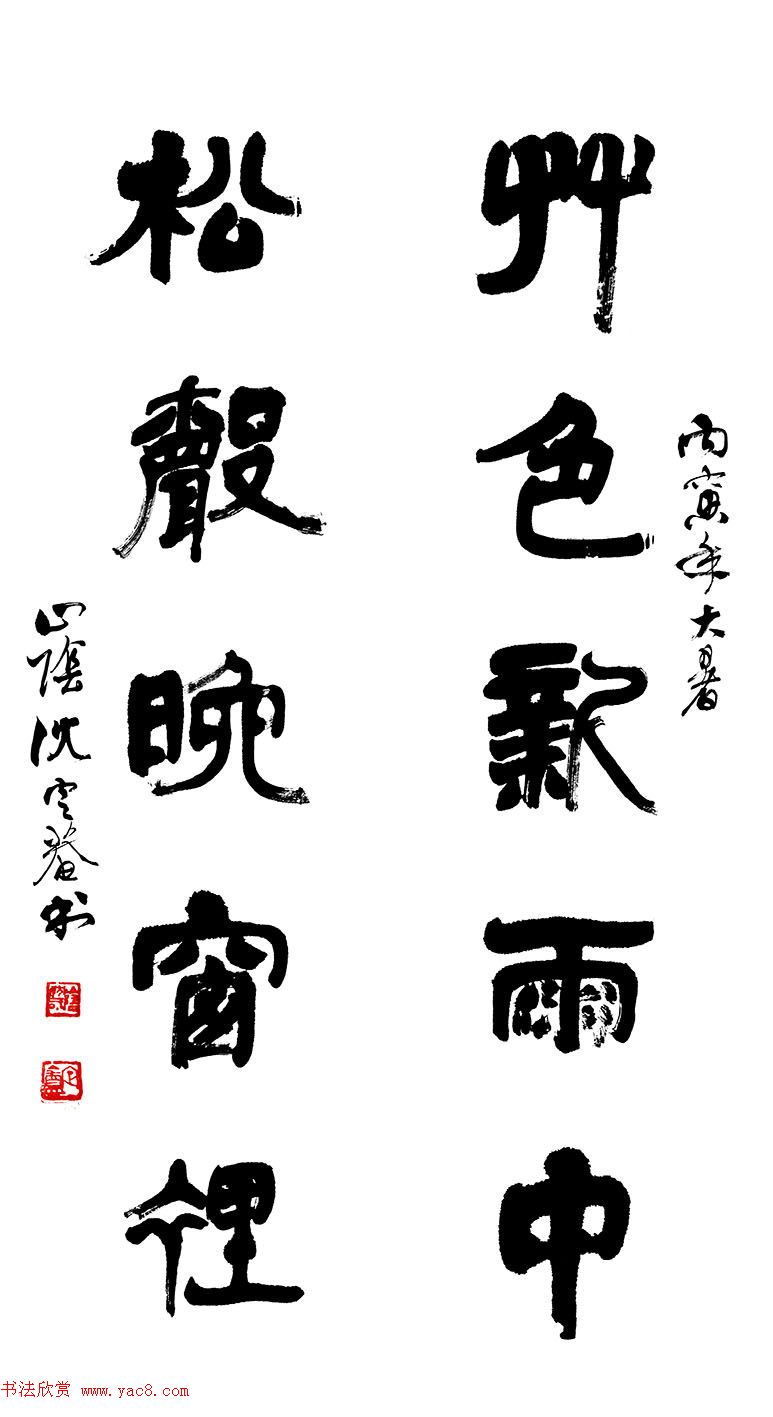 丙寅年大暑
艸色新雨中
松聲晚窗裡
山陰沈定庵書
书法欣赏 www.yac8.com